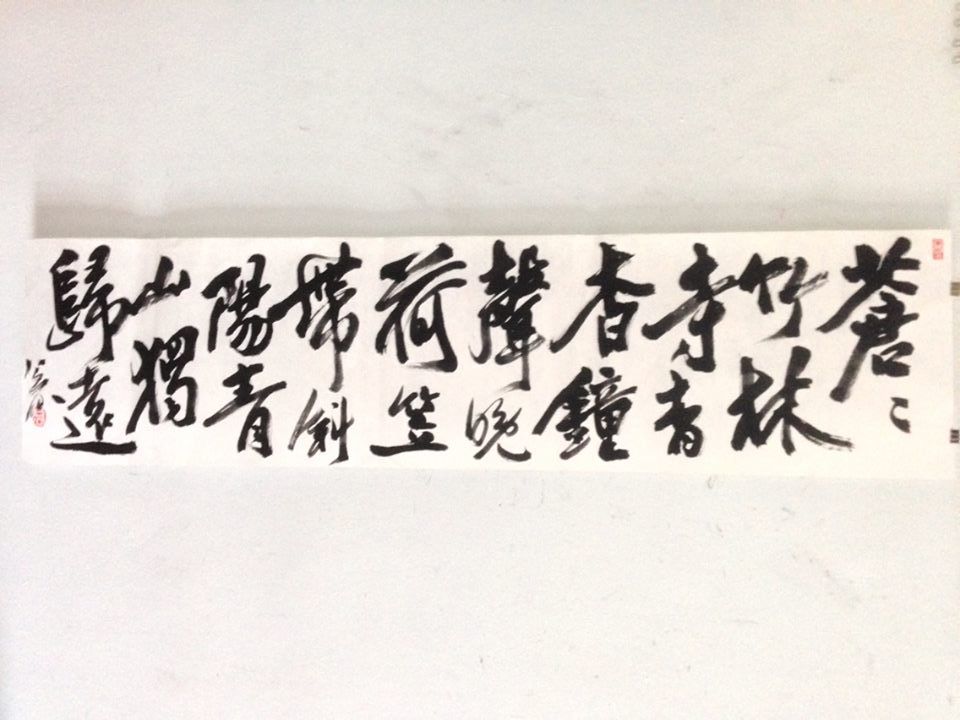 蒼〻
竹林
寺杳
杳鐘
聲晚
荷笠
帶斜
陽青
山獨
歸遠